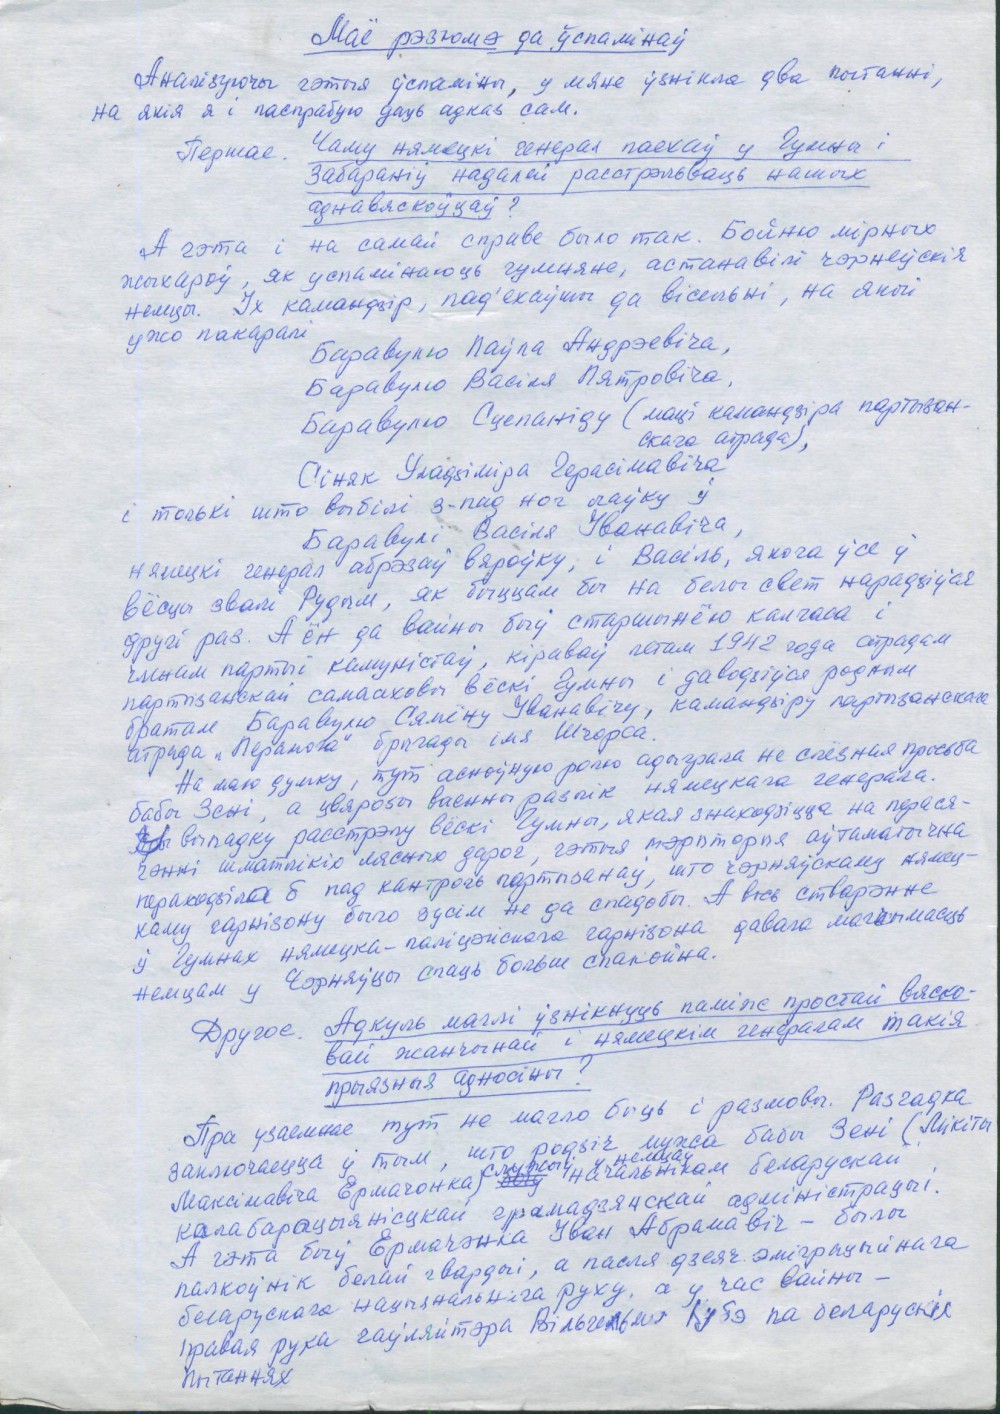 Маё рэзюмэ да ўспамінаў
Аналізуючы гэтыя ўспаміны, у мяне ўзнікла два пытанні,
на якія я і паспрабую даць адказ сам.
Першае. Чаму нямецкі генерал паехаў у Гумны і
забараніў надалей расстрэльваць нашых
аднавяскоўцаў?
А гэта і на самай справе было так. Бойню мірных
жыхароў, як успамінаюць гумняне, астанавілі чэрнеўскія
немцы. Іх камандзір, пад'ехаўшы да вісельні, на якой
ужо пакаралі
Баравулю Паўла Андрэевіча,
Баравулю Васіля Пятровіча,
Баравулю Сцепаніду (маці камандзіра партызан-
скага атрада),
Сіняк Уладзіміра Герасімавіча
і толькі што выбілі з-пад ног лаўку ў
Баравулі Васіля Іванавіча,
нямецкі генерал абрэзаў вяроўку, і Васіль, якога ўсе ў
вёсцы звалі Рудым, як быццам бы на белы свет нарадзіўся
другі раз. А ён да вайны быў старшынёю калгаса і
членам партыі камуністаў, кіраваў летам 1942 года атрадам
партызанскай самааховы вёскі Гумны і даводзіўся родным
братам Баравулю Сямёну Іванавічу, камандзіру партызанскага
атрада „Перамога" брыгады імя Шчорса.
На маю думку, тут асноўную ролю адыграла не слёзная просьба
бабы Зені, а цвярозы ваенны разлік нямецкага генерала.
выпадку расстрэлу вёскі Гумны, якая знаходзіцца на перася-
чэнні шматлікіх лясных дарог, гэтыя тэрыторыя аўтаматычна
пераходзіла б пад кантроль партызанаў, што чэрняўскаму нямец-
каму гарнізону было зусім не да спадобы. А вось стварэнне
ў Гумнах нямецка-паліцэйскага гарнізона давала магчымасць
немцам у Чэрняўцы спаць больш спакойна.
Другое. Адкуль маглі ўзнікнуць паміж простай вяско-
вай жанчынай і нямецкім генералам такія
прыязныя адносіны?
Пра ўзаемнае тут не магло быць і размовы. Разгадка
заключаецца ў тым, што родзіч мужа бабы Зені (Мікіты
Максімавіча Ермачонка) служыў у немцаў начальнікам беларускай
калабарацыянісцкай грамадзянскай адміністрацыі.
А гэта быў Ермачэнка Іван Абрамавіч – былы
палкоўнік белай гвардыі, а пасля дзеяч эміграцыйнага
беларускага нацыянальнага руху, а у час вайны –
правая рука гаўляйтэра Вільгельма Кубэ па беларускіх
пытаннях